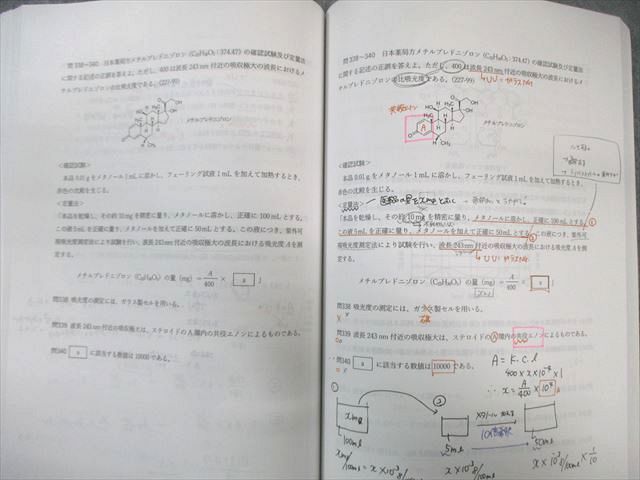 問338～340 日本薬局方メチルプレドニゾロン (C22H30O5：374.47) の確認試験及び定量法
に関する記述の正誤を答えよ。ただし、400は波長243 nm付近の吸収極大の波長におけるメ
チルプレドニゾロンの比吸光度である。(227-99)
メチルプレドニゾロン
<確認試験>
本品0.01 gをメタノール1 mLに溶かし、フェーリング試液1 mLを加えて加熱するとき、
赤色の沈殿を生じる。
<定量法>
「本品を乾燥し、その約10 mgを精密に量り、メタノールに溶かし、正確に100 mLとする。
この液5 mLを正確に量り、メタノールを加えて正確に50 mLとする。この液につき、紫外可
視吸光度測定法により試験を行い、波長243 nm付近の吸収極大の波長における吸光度Aを測
定する。
メチルプレドニゾロン (C22H30O5) の量 (mg) = A/400 × a 」
問338 吸光度の測定には、ガラス製セルを用いる。
問339 波長243 nm付近の吸収極大は、ステロイドのA環内の共役エノンによるものである。
問340 a に該当する数値は10000である。
問338～340 日本薬局方メチルプレドニゾロン (C22H30O5：374.47) の確認試験及び定量法
に関する記述の正誤を答えよ。ただし、400は波長243 nm付近の吸収極大の波長におけるメ
チルプレドニゾロンの比吸光度である。(227-99)
共役エノン
A
メチルプレドニゾロン
<確認試験>
本品0.01 gをメタノール1 mLに溶かし、フェーリング試液1 mLを加えて加熱するとき、
赤色の沈殿を生じる。
<定量法>
「本品を乾燥し、その約10 mgを精密に量り、メタノールに溶かし、正確に100 mLとする。①
この液5 mLを正確に量り、メタノールを加えて正確に50 mLとする。この液につき、紫外可②
視吸光度測定法により試験を行い、波長243 nm付近の吸収極大の波長における吸光度Aを測
定する。
メチルプレドニゾロン (C22H30O5) の量 (mg) = A/400 × a 」
問338 吸光度の測定には、ガラス製セルを用いる。
石英
問339 波長243 nm付近の吸収極大は、ステロイドのA環内の共役エノンによるものである。
問340 a に該当する数値は10000である。
A = k.c.l
400 × x × 10⁻⁴ × 1
∴ x = A/400 × 10⁴
①
x mg
100ml
②
5ml
10倍希釈
50ml
x mg/100ml = x × 10⁻³ g/100ml
x × 10⁻³ g/100ml
x × 10⁻³ g/100ml × 1/10